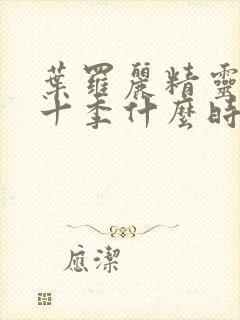 葉羅麗精靈
十季什麼時
應潔